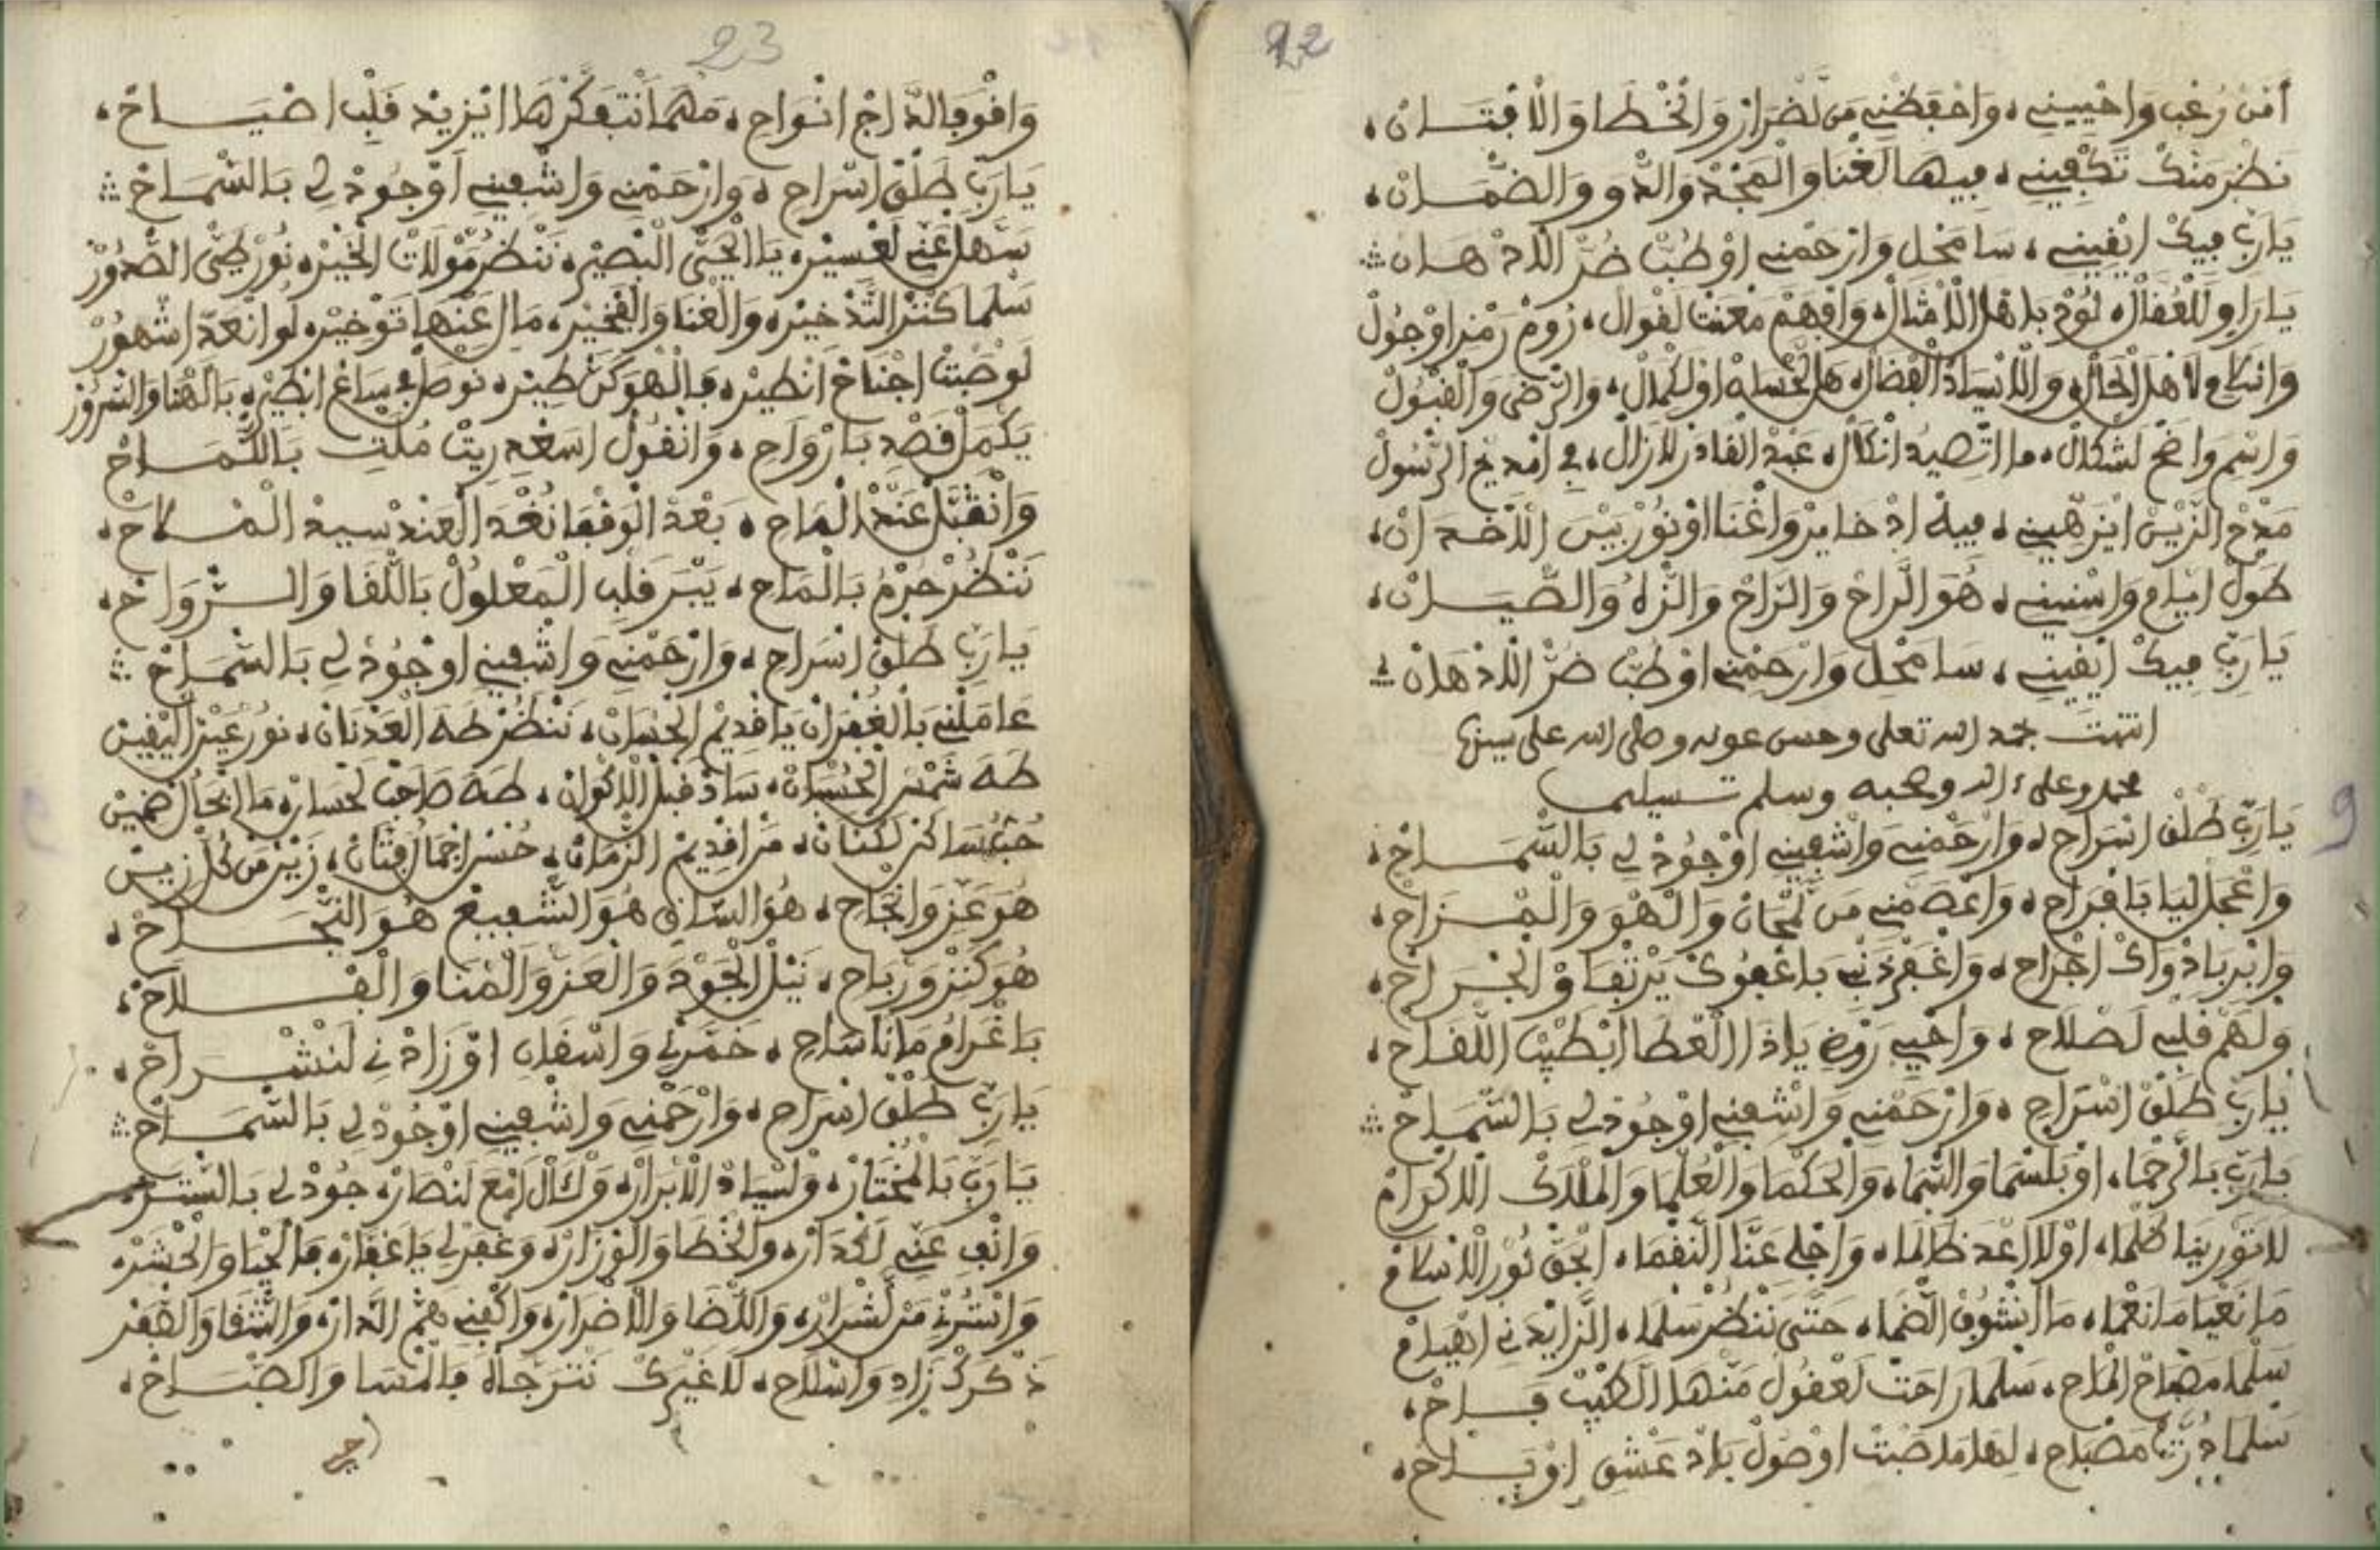 22
أمن رعب واحييني، واحفظني من لضرار والخطا والافتان،
نظر منك تكفيني، فيها لغنا والمجد والدو والضمان،
يا رب فيك ايقيني، سامحل وارحمني او طب ضر اللاد هان
يا راو للغفال، لود باهل الامثال، وافهم معنت لقوال، روم رمز او جول
لاهل الحال، والاسياد الفضال، هل لحسان او لكمال، والرضى والقبول
واسم واضح لشكال، عبد القادر لازال، في امديح الرسول
مدح الزين ايزهيني، فيه اذخاير واغنا او نور بيس
طول ايام واسنيني، هو الراح والراح والنزاه والصيان،
يا رب فيك ايقيني، سامحل وارحمني او طب ضر اللاد هان
انتهت بحمد الله تعلى وحسن عونه وصلى الله على سيدنا
محمد وعلى ءاله وصحبه وسلم تسليما
يا رب طلق اسراح، وارحمني واشفيني اوجود لي بالسماح،
واعجل ليا بافراح، واعصمني من لمحان والهو والمزاح،
وابر بادواك اجراح، واغفر ذنب باعفوك يرتفاو الجراح،
ولهم قلبي لصلاح، واحيي روض ياذا العطا ابطيب اللقاح،
يا رب طلق اسراح، وارحمني واشفيني اوجود لي بالسماح
يا رب بالرحما، او بلسما والسما، والحكما والعلما والملاك الكرام
لا تورينا كلما، اولا اعد ظالما، واجلي عنا النقما، ابحق نور الاسلام
ما نعيا ما نغما، ما ابشوق الضما، حتى ننظر سلما، الزايد ني اهيام
سلما مصباح الماح، سلما راحت لعقول منها الطيب فاح،
سلما درت مصباح، لهلا ما صبت اوصول باد عشق او باح،
23
وافوفا الداج انواح، مهما انتفكرها ايزيد قلب اضياح،
يا رب طلق اسراح، وارحمني واشفيني اوجود لي بالسماح
سهل عني لعسير، يا الحي البصير، ننظر مولات الخير، نور ضي الصدور
سلما كنز التذخير، والغنا والفخير، مال عنها توخير، لو انعد اشهور
لو صبت اجناح انطير، فالهو كن طير، نوصل في ساع ابطير، بالهنا والسرور
يكمل قصد بارواح، وانقول اسعد ريت ملت بالكماح
وانقبل عند الماح، بعد الوقفا نغد العند سيد الملاح،
ننظر حرم بالماح، يبر قلب المعلول باللقا والسرواح،
يا رب طلق اسراح، وارحمني واشفيني اوجود لي بالسماح
عاملني بالغفران يا قديم الحسان، ننظر طه العدنان، نور عين اليقين
طه شمس الحسان، ساد قبل الاكوان، طه صاحب لحسان، مال الحال ضمين
حب ساكن لكنان، من اقديم الزمان، حسن اجمال فتان، زين من كل زين
هو عز وانجاح، هو السان هو الشفيع هو النجاح،
هو كنز ورباح، نيل الجود والعز والمنا والفلاح،
باغرام مانا صاح، خمرني واسقان او زاد ني لنشراح،
يا رب طلق اسراح، وارحمني واشفيني اوجود لي بالسماح
يا رب بالمختار، ولسياد الابرار، وكال امع لنصار، جود لي بالستر،
وانف عني لكدار، والخطا والوزار، وغفر لي يا غفار، فالحيا والحشر،
واسترني من لشرار، واللضا والاضرار، واكفيني هم الدار، والشقا والفقر
ذكرك زاد واسلاح، لا غيرك نترجاه فالمسا والصباح،